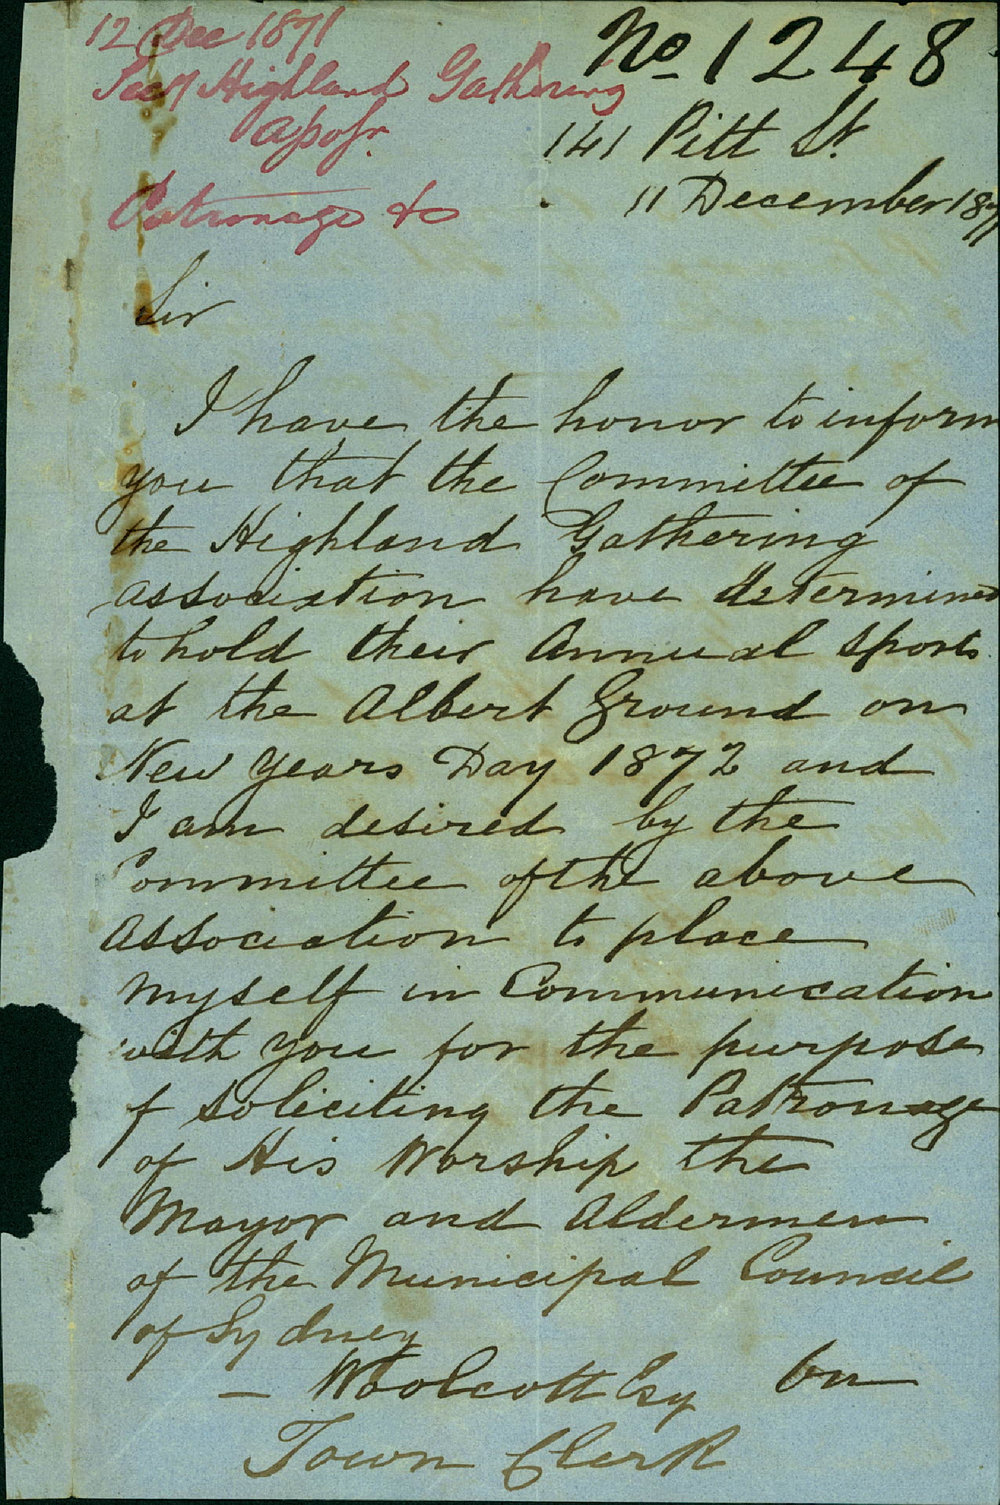 12 Dec 1871
Secy Highland Gathering
Assoc.
Patronage &c
No 1248
141 Pitt St.
11 December 1871
Sir
I have the honor to inform
you that the Committee of
the Highland Gathering
association have determined
to hold their Annual Sports
at the Albert Ground on
New Years Day 1872 and
I am desired by the
Committee of the above
Association to place
myself in Communication
with you for the purpose
of soliciting the Patronage
of His Worship the
Mayor and Aldermen
of the Municipal Council
of Sydney
on
— Woolcott Esq
Town Clerk